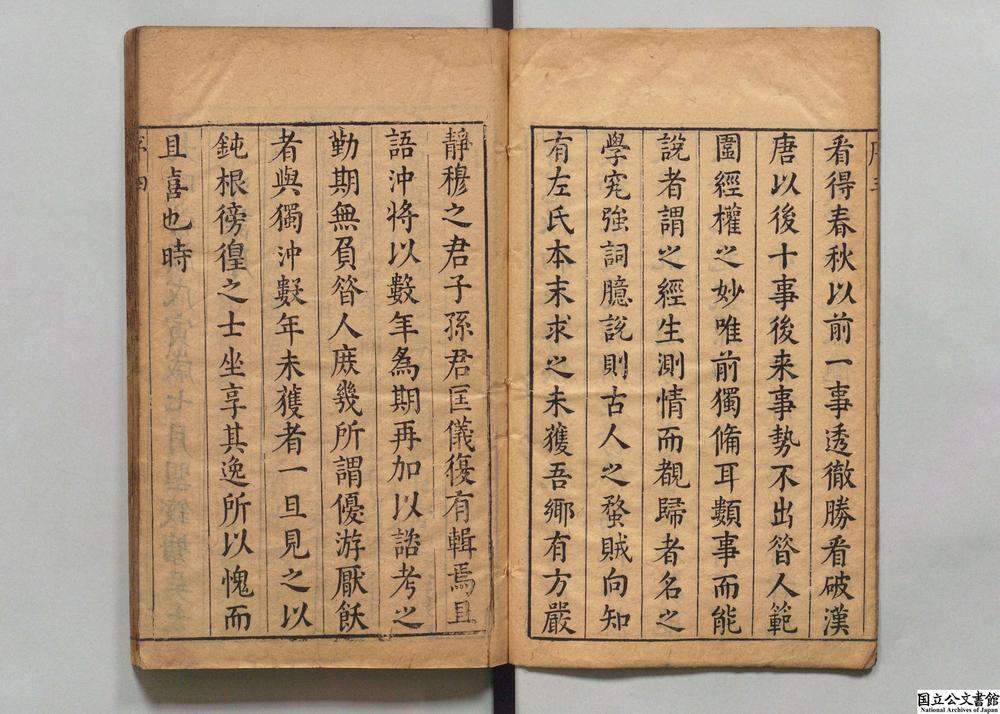 看得春秋以前一事透徹勝看破漢
唐以後十事後来事勢不出昔人範
圍經權之妙唯前獨俻耳類事而能
說者謂之經生測情而覩歸者名之
學究強詞臆說則古人之蝥賊向知
有左氏本末求之未獲吾鄉有方嚴
靜穆之君子孫君匡儀復有輯焉且
語沖将以數年為期再加以諮考之
勤期無負昝人庻幾所謂優游厭飫
者與獨沖數年未獲者一旦見之以
鈍根徬徨之士坐享其逸所以愧而
且喜也時
国立公文書館
National Archives of Japan